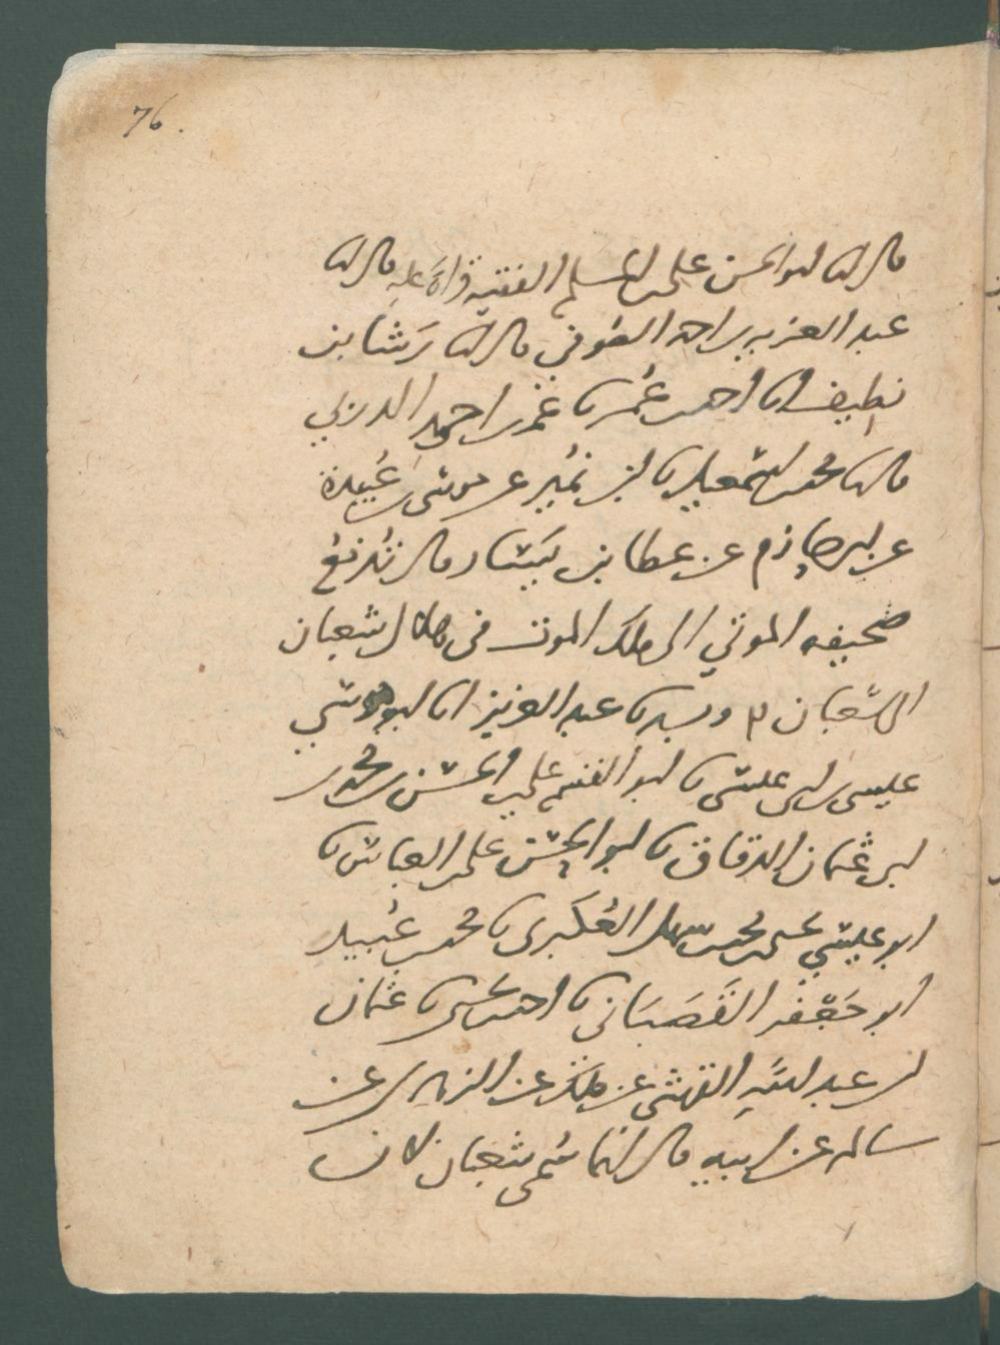 76.
قال انا ابو الحسن علي بن المسلم الفقيه قراءة عليه قال انا
عبد العزيز بن احمد الصوفي قال انا رشا بن
نطيف انا احمد بن عمر نا عمر بن احمد الدربي
قال نا محمد بن اسمعيل نا ابن نمير عن موسى بن عبيدة
عن ابي حازم عن عطا بن يسار قال ترفع
صحيفه الموتي الى ملك الموت في هلال شعبان
الى شعبان وبه نا عبد العزيز انا ابو موسي
عيسى بن ابي عيسى نا ابو الفتح علي بن الحسن بن محمد بن
ابي عثمان الدقاق نا ابو الحسن علي بن العباس نا
ابو عيسي محمد بن سهل العكبري نا محمد بن عبيد
ابو جعفر القصباني نا احمد بن عيسى نا عثمان
بن عبد الله القرشي عن ملك عن الزهري عن
سالم عن ابيه قال انما سمي شعبان لان